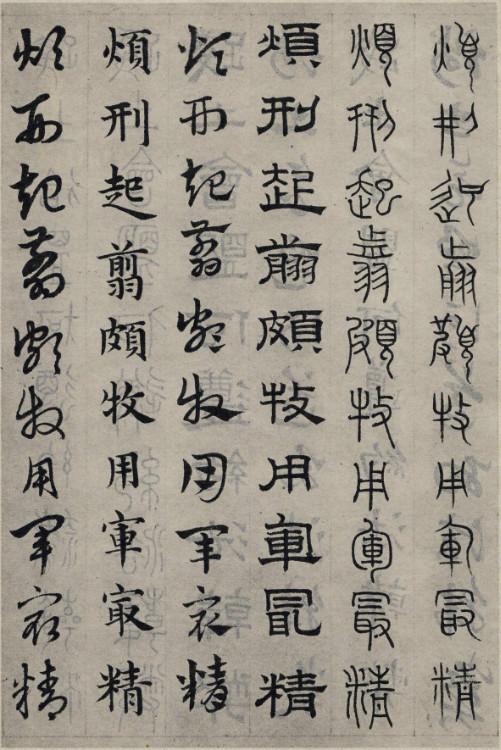 煩刑起翦頗牧用軍㝡精
煩刑起翦頗牧用軍㝡精
煩刑起翦頗牧用軍冣精
煩刑起翦頗牧用軍㝡精
煩刑起翦頗牧用軍㝡精
煩刑起翦頗牧用軍㝡精